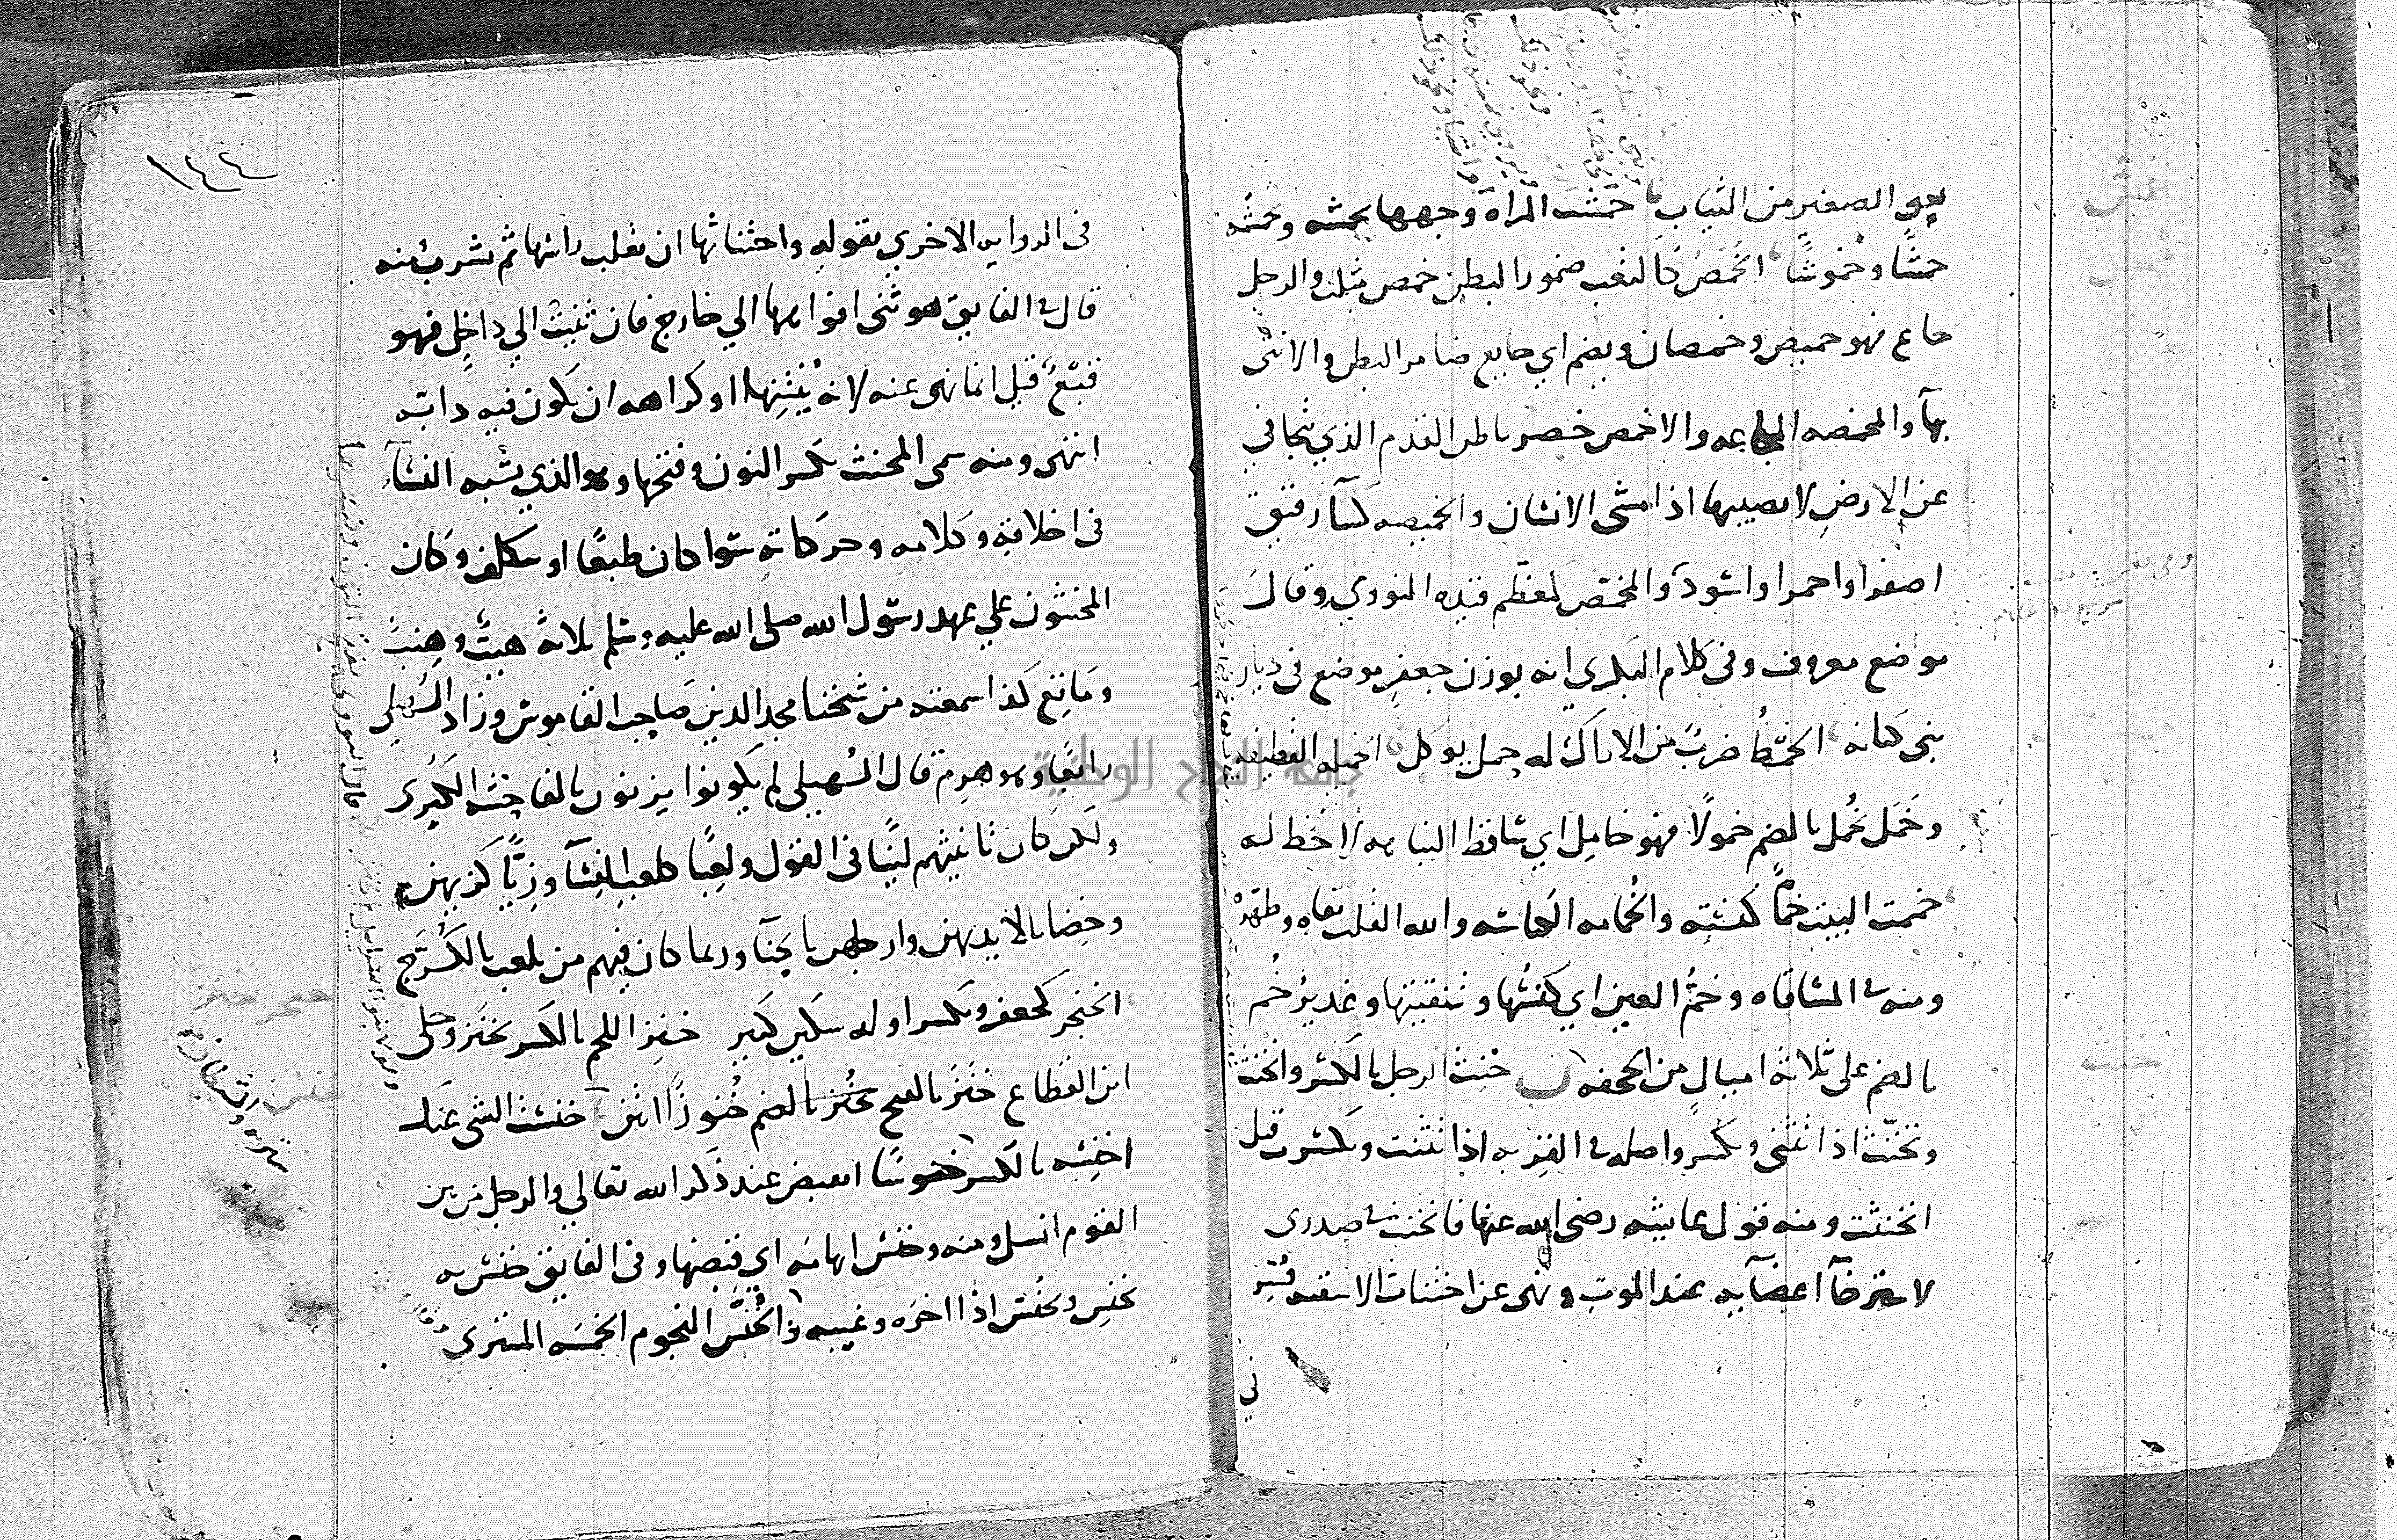 يعني الصغير من الثياب خمشت المرأة وجهها تخمشه وتخمشه
خمشا وخموشا الخمص كالتعب ضمور البطن خمص مثلث والرجل
جاع فهو خميص وخمصان ويضم اي جايع ضامر البطن والانثى
بهآ والمخمصه المجاعه والاخمص خصر باطن القدم الذي يتجافى
عن الارض لا يصيبها اذا مشى الانسان والخميصه كسآ رقيق
اصفر او احمر او اسود والمخمص كمعظم قيده النووي وقال
موضع معروف وفي كلام البكري انه بوزن جعفر موضع في ديار
بني كنانه الخمط ضرب من الاراك له حمل يوكل الخميله القطيفه
وخمل يخمل بالضم خمولا فهو خامل اي ساقط النباهه لا حظ له
خممت البيت خما كنسته والخمامه الكناسه والله القلب نقاه وطهره
ومنه في المساقاه وخم العين اي كنسها وتنقيتها وغدير خم
بالضم على ثلاثه اميال من الجحفه خنث الرجل بالكسر وانخنث
وتخنث اذا تثنى وتكسر واصله في القربه اذا تثنت وتكسرت قيل
انخنثت ومنه قول عايشه رضي الله عنها فانخنث في صدري
لاسترخآ اعضآيه عند الموت ونهى عن اختناث الاسقيه فسر
في
١٤٤
في الروايه الاخري بقوله واختناثها ان تقلب راسها ثم تشرب منه
قال في الفايق هو ثني افواهها الي خارج فان ثنيت الي داخل فهو
قبع قيل انما نهى عنه لانه ينتنها او كراهه ان يكون فيه دابه
انتهى ومنه سمى المخنث بكسر النون وفتحها وهو الذي يشبه النسآ
في اخلاقه وكلامه وحركاته سوا كان طبعا او تكلف وكان
المخنثون علي عهد رسول الله صلى الله عليه وسلم ثلاثه هيت وهنب
وماتع كذا سمعته من شيخنا مجد الدين صاحب القاموس وزاد السهيلي
رابعا وهو هرم قال السهيلي لم يكونوا يزنون بالفاحشه الكبرى
ولكن كان تانيثهم لينا في القول ولعبا كلعب النسآ وزيا كزيهن
وخضابا لايديهن وارجلهن بالحنآ وربما كان فيهم من يلعب بالكرج
الخنجر كجعفر وبكسر اوله سكين كبير خنز اللحم بالكسر يخنز وحكى
ابن القطاع خنز بالفتح يخنز بالضم خنوزا انتن خنست الشي عنك
اخنسه بالكسر خنوسا انقبض عند ذكر الله تعالي والرجل من بين
القوم انسل ومنه وخنس ابهامه اي قبضها وفي الفايق خنس به
يخنس ويخنس اذا اخره وغيبه والخنس النجوم الخمسه المشتري
جامعة النجاح الوطنية